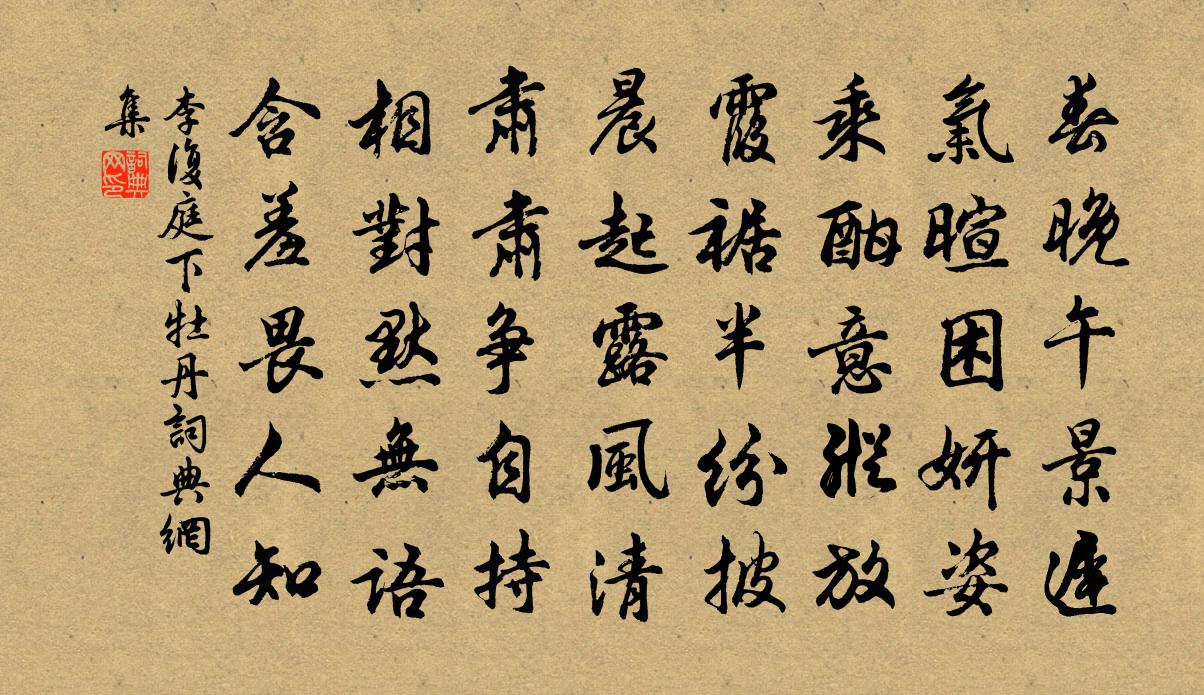 春晚午景遲
氣暄困妍姿
乘酣意縱放
霞裾半紛披
晨起露風清
肅肅爭自持
相對默無語
含羞畏人知
李復庭下牡丹詞典網
集
詞典
网印